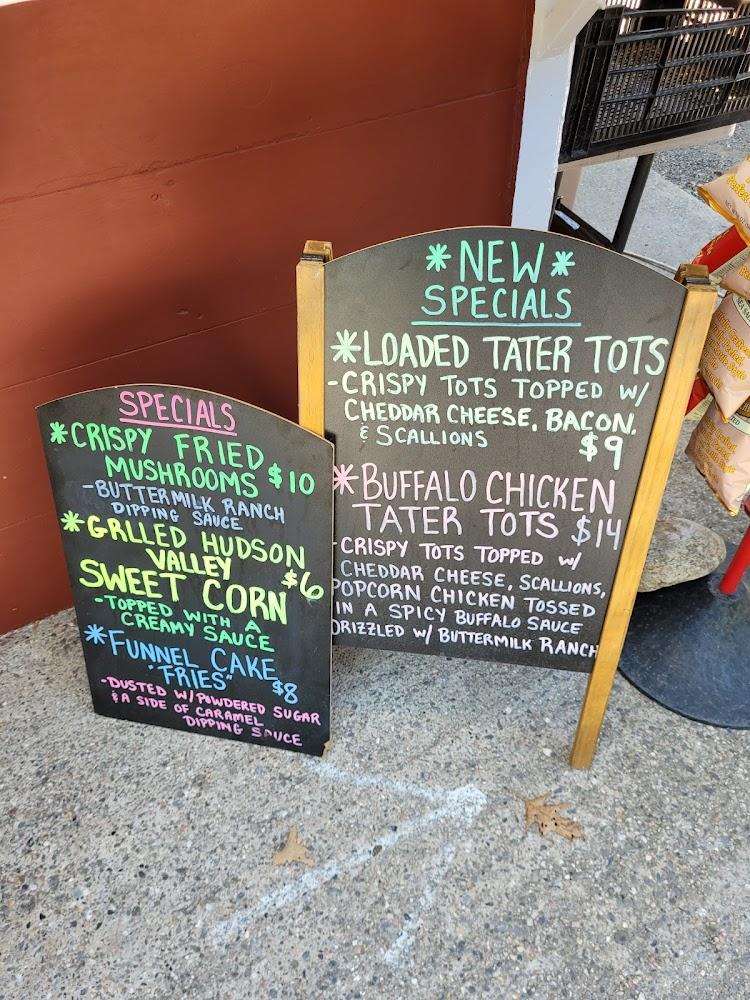 SPECIALS
*CRISPY FRIED
MUSHROOMS $10
-BUTTERMILK RANCH
DIPPING SAUCE
*GRLLED HUDSON
VALLEY
SWEET CORN $6
-TOPPED WITH A
CREAMY SAUCE
*FUNNEL CAKE
"FRIES" $8
-DUSTED W/POWDERED SUGAR
& A SIDE OF CARAMEL
DIPPING SAUCE
*NEW*
SPECIALS
*LOADED TATER TOTS
-CRISPY TOTS TOPPED W/
CHEDDAR CHEESE, BACON,
& SCALLIONS $9
*BUFFALO CHICKEN
TATER TOTS $14
-CRISPY TOTS TOPPED W/
CHEDDAR CHEESE, SCALLIONS,
POPCORN CHICKEN TOSSED
IN A SPICY BUFFALO SAUCE
DRIZZLED W/ BUTTERMILK RANCH